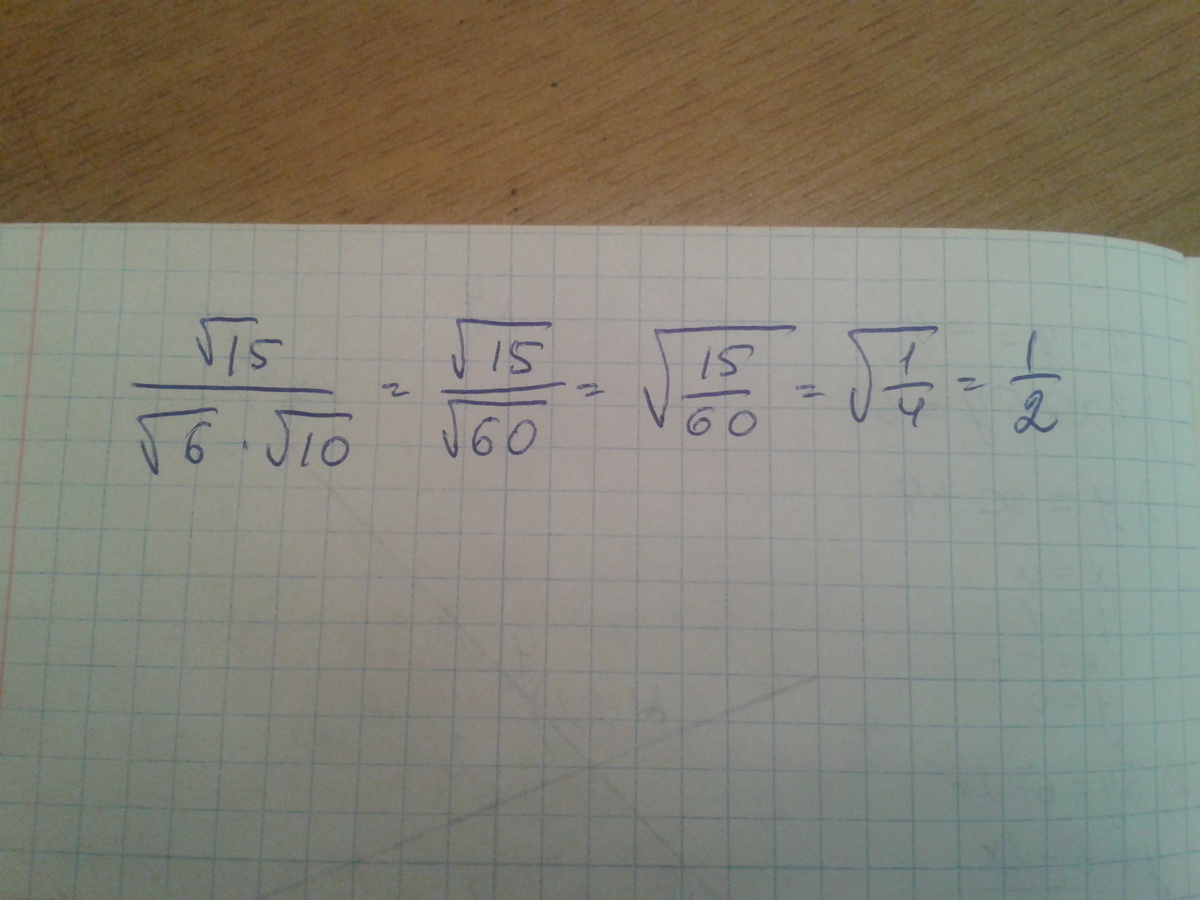 √15 / (√6 · √10) = √15 / √60 = √(15/60) = √(1/4) = 1/2